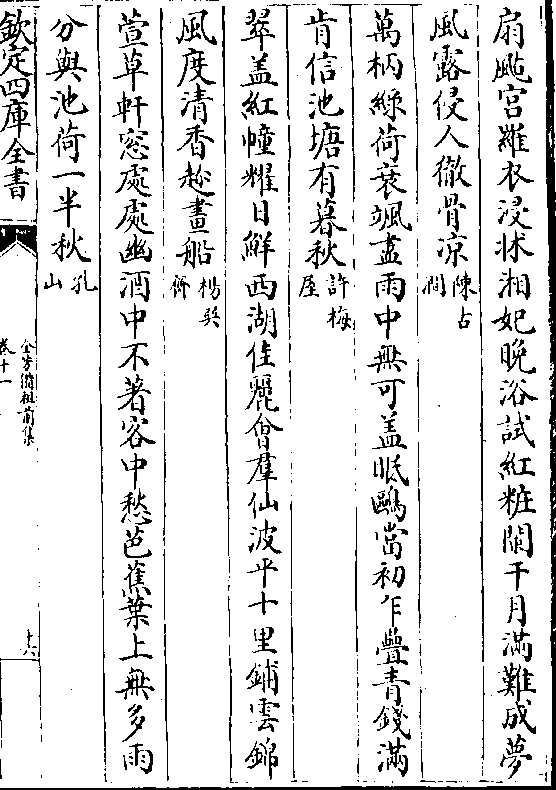 扇颭宫羅衣浸牀湘妃晚浴試紅粧闌干月滿難成夢
風露侵人徹骨凉陳古澗
萬柄緑荷衰颯盡雨中無可盖眠鷗當初乍疊青錢滿
肯信池塘有暮秋許梅屋
翠盖紅幢耀日鮮西湖佳麗㑹羣仙波平十里鋪雲錦
風度清香趁畫船楊巽齋
萱草軒窓處處幽酒中不著客中愁芭蕉葉上無多雨
分與池荷一半秋孔山
欽定四庫全書
全芳備祖前集
卷十一
十六